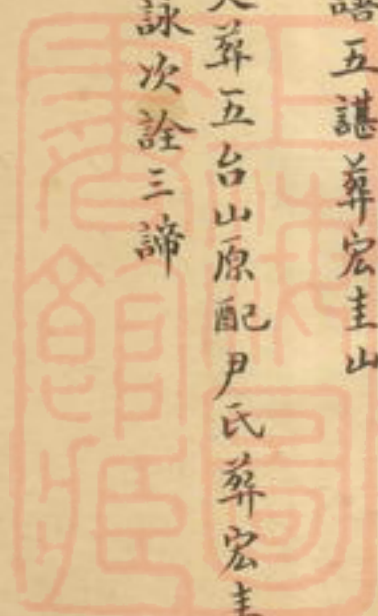 五諶葬宏圭山
葬五台山原配尹氏葬宏圭
詠次詮三諦